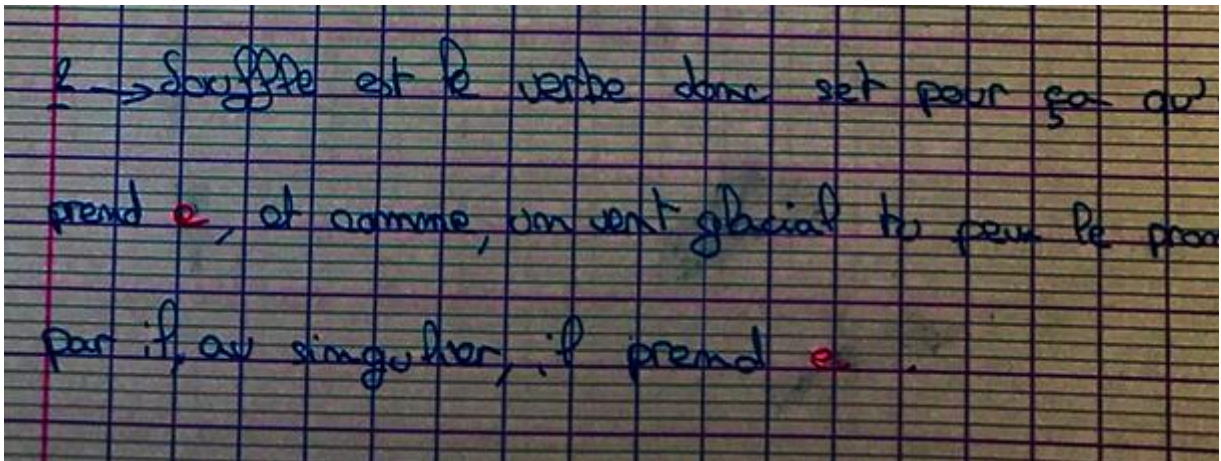 2 → Souffle est le verbe donc set pour ça qu'
prend e, et comme, un vent glacial tu peux le pron
par il, au singulier, il prend e.